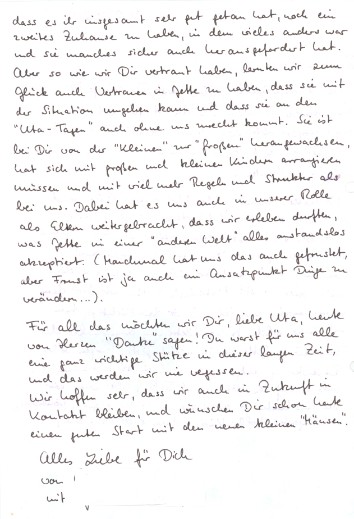 dass es ihr insgesamt sehr gut getan hat, noch ein
zweites Zuhause zu haben, in dem vieles anders war
und sie manches sicher auch herausgefordert hat.
Aber so wie wir Dir vertraut haben, lernten wir zum
Glück auch Vertrauen in Jette zu haben, dass sie mit
der Situation umgehen kann und dass sie an den
"Uta-Tagen" auch ohne uns zurecht kommt. Sie ist
bei Dir von der "Kleinen" zur "Großen" herangewachsen,
hat sich mit großen und kleinen Kindern arrangieren
müssen und mit viel mehr Regeln und Struktur als
bei uns. Dabei hat es uns auch in unserer Rolle
als Eltern weitergebracht, dass wir erleben durften,
was Jette in einer "anderen Welt" alles anstandslos
akzeptiert. (Manchmal hat uns das auch gefrustet,
aber Frust ist ja auch ein Ansatzpunkt Dinge zu
verändern...).
Für all das möchten wir Dir, liebe Uta, heute
von Herzen "Danke" sagen! Du warst für uns alle
eine ganz wichtige Stütze in dieser langen Zeit,
und das werden wir nie vergessen.
Wir hoffen sehr, dass wir auch in Zukunft in
Kontakt bleiben, und wünschen Dir schon heute
einen guten Start mit den neuen kleinen "Mäusen".
Alles Liebe für Dich
von
mit